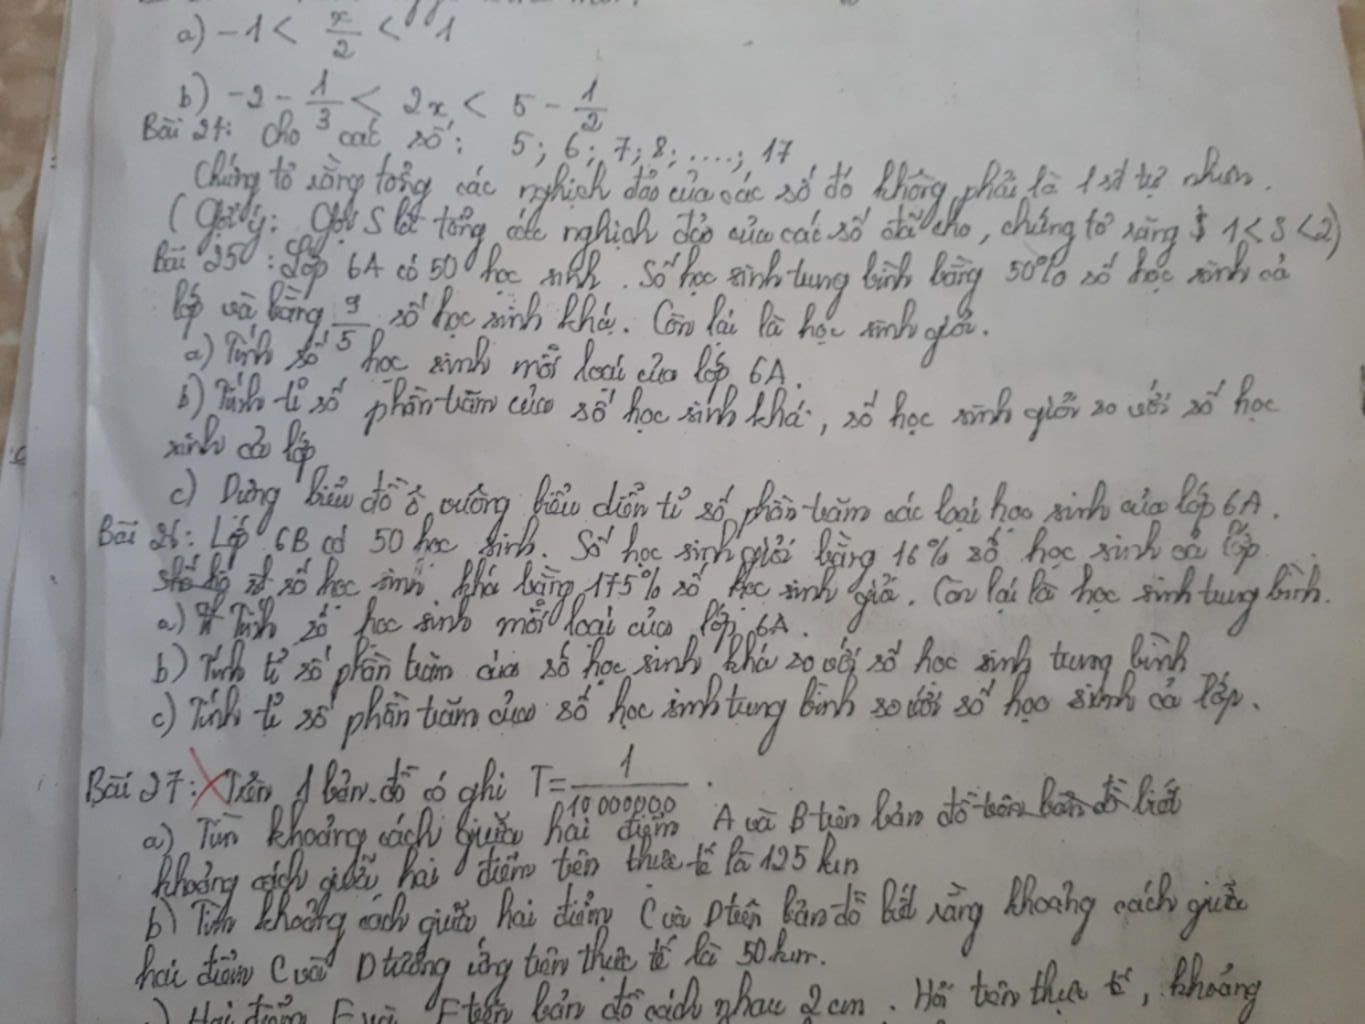 a) -1 < x/2 < 1
b) -2 - 1/3 < 2x < 5 - 1/2
Bài 24: Cho các số: 5; 6; 7; 8; ....; 17
Chứng tỏ rằng tổng các nghịch đảo của các số đó không phải là 1 số tự nhiên.
(Gợi ý: Gọi S là tổng các nghịch đảo của các số đã cho, chứng tỏ rằng 1 < S < 2)
Bài 25: Lớp 6A có 50 học sinh. Số học sinh tung bình bằng 50% số học sinh cả
lớp và bằng 9/5 số học sinh khá. Còn lại là học sinh giỏi.
a) Tính số học sinh mỗi loại của lớp 6A.
b) Tính tỉ số phần trăm của số học sinh khá, số học sinh giỏi so với số học
sinh cả lớp
c) Dựng biểu đồ ô vuông biểu diễn tỉ số phần trăm các loại học sinh của lớp 6A.
Bài 26: Lớp 6B có 50 học sinh. Số học sinh giỏi bằng 16% số học sinh cả lớp
số học sinh khá bằng 175% số học sinh giỏi. Còn lại là học sinh tung bình.
a) Tính số học sinh mỗi loại của lớp 6A.
b) Tính tỉ số phần trăm của số học sinh khá so với số học sinh trung bình
c) Tính tỉ số phần trăm của số học sinh tung bình so với số học sinh cả lớp.
Bài 27: Trên 1 bản đồ có ghi T = 1/10 000000.
a) Tìm khoảng cách giữa hai điểm A và B trên bản đồ trên bản đồ biết
khoảng cách giữa hai điểm trên thực tế là 125 km
b) Tìm khoảng cách giữa hai điểm C và D trên bản đồ biết rằng khoảng cách giữa
hai điểm C và D tương ứng trên thực tế là 50 km.
Hai điểm E và F trên bản đồ cách nhau 2 cm. Hỏi trên thực tế, khoảng